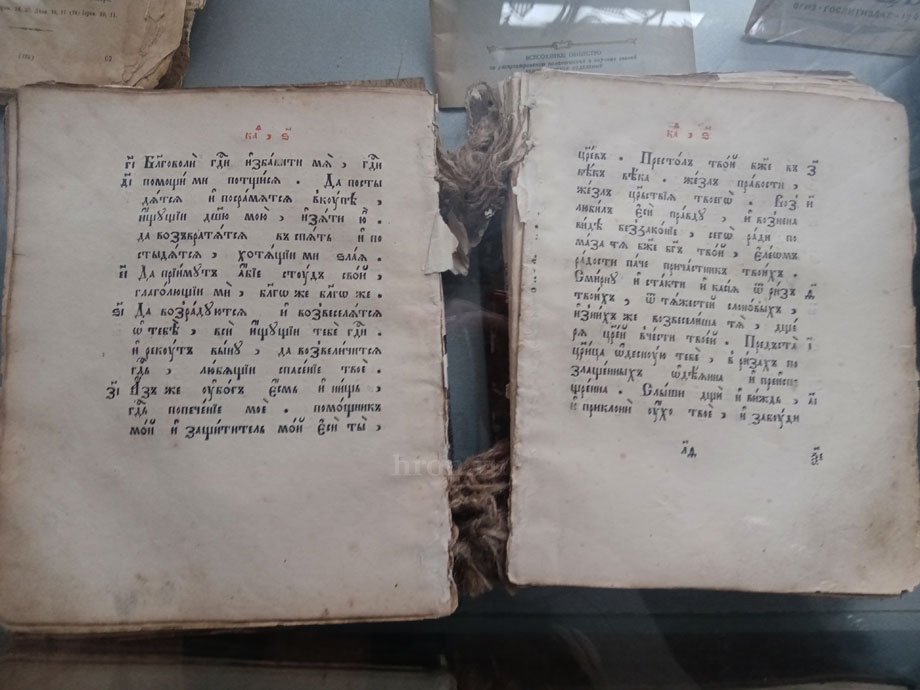 Стр. 10, 11.
(132)
ВСЕСОЮЗНОЕ ОБЩЕСТВО
ОГИЗ-ГОСПОЛИТИЗДАТ-19
к҃а, ѕ҃
г҃і Бл҃говоли̑ гд҃и и҆зба́вити мѧ̀, гд҃и
д҃і по́мощи ми потщи́сѧ. Да посты
дѧ́тсѧ и҆ посра́мѧтсѧ вкꙋ́пѣ,
и҆́щꙋщїи дш҃ꙋ мою̀, и҆з̾ѧ́ти ю҆̀.
да возъвратѧ́тсѧ въ спѧ́ть и҆ по
стыдѧ́тсѧ, хотѧ́щїи ми ѕла́ѧ.
є҃і Да прїи́мꙋт а҆́бїе стоу́дъ сво́й,
глаго́лющїи мѝ, бл҃гѡ же бл҃гѡ же.
ѕ҃і Да возра́дꙋютсѧ и҆ возвеселѧ́тсѧ
ѡ҆ тебѣ̀, всѝ и҆́щꙋщїи тебѐ гд҃и.
и҆ рекоу́т вы́нꙋ, да возвели́читсѧ
гд҃ь, лю́бѧщїи спасе́нїе твоѐ.
з҃і А҆́зъ же оу҆бо́г є҆́смь и҆ ни́щь,
гд҃ь попече́нїе моѐ. помо́щникъ
мо́й и҆ защи́титель мо́й є҆сѝ ты̀,
к҃а, ѕ҃
цр҃евъ. Престо́лъ тво́й бж҃е въ з҃
вѣ́къ вѣ́ка. же́злъ пра́вости,
же́злъ црⷭ҇твїѧ твоегѡ̀. Воз и҃
люби́лъ є҆сѝ пра́вдꙋ, и҆ возне́на
ви́дѣ беззако́нїе, сегѡ̀ ра́ди по
ма́за тѧ бж҃е бг҃ъ тво́й, є҆ле́омъ
ра́дости па́че прича́стникъ твои́хъ.
Сми́рнꙋ и҆ ста́кти и҆ ка́сїѧ ѿ ри́зъ ѳ҃
твои́хъ, ѿ тѧ́жестїй слоно́выхъ,
и҆зни́хъ же возвесели́ша тѧ̀, дще́
рѧ цр҃е́й в̾че́сти твое́й. Предъста̀ і҃
цр҃и́ца ѡ҆деснꙋ́ю тебѐ, в̾ри́захъ по
злаще́нныхъ ѡ҆дѣ́ѧна и҆ преиспе
щре́нна. Слы́ши дщѝ и҆ ви́ждь, а҃і
и҆ приклонѝ оу҆́хо твоѐ, и҆ забоу́ди
л҃д